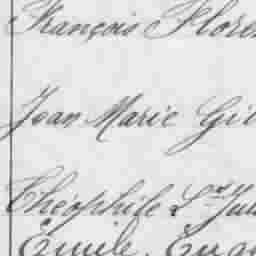 François Flor
Jean Marie Gi
Théophile
Émile Eug